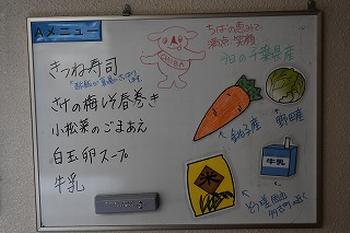 Aメニュー
きつね寿司
さけの梅しそ春巻き
小松菜のごまあえ
白玉卵スープ
牛乳
CHIBA
ちばの恵みで
満点笑顔
今日の千葉県産
銚子産
野田産
牛乳
米